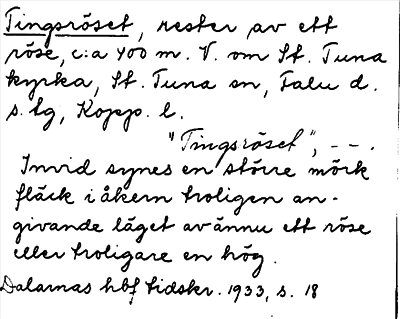 Tingsröset, rester av ett
röse, c:a 400 m. V. om St. Tuna
kyrka, St. Tuna sn, Falu d.
s. tg, Kopp. l.
"Tingsröset", - - .
Invid synes en större mörk
fläck i åkern troligen an-
givande läget av ännu ett röse
eller troligare en hög.
Dalarnas hbf tidskr. 1933, s. 18